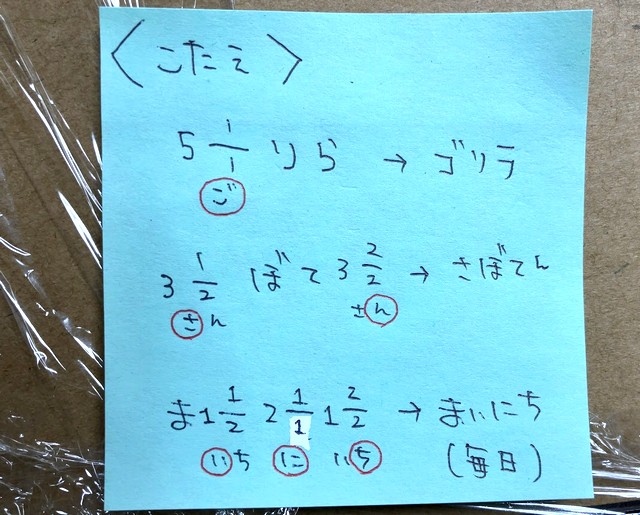 〈こたえ〉
5 1/1 りら → ゴリラ
ご
3 1/2 ぼて 3 2/2 → さぼてん
さん さん
ま1 1/2 2 1/1 1 2/2 → まいにち
いち に いち (毎日)